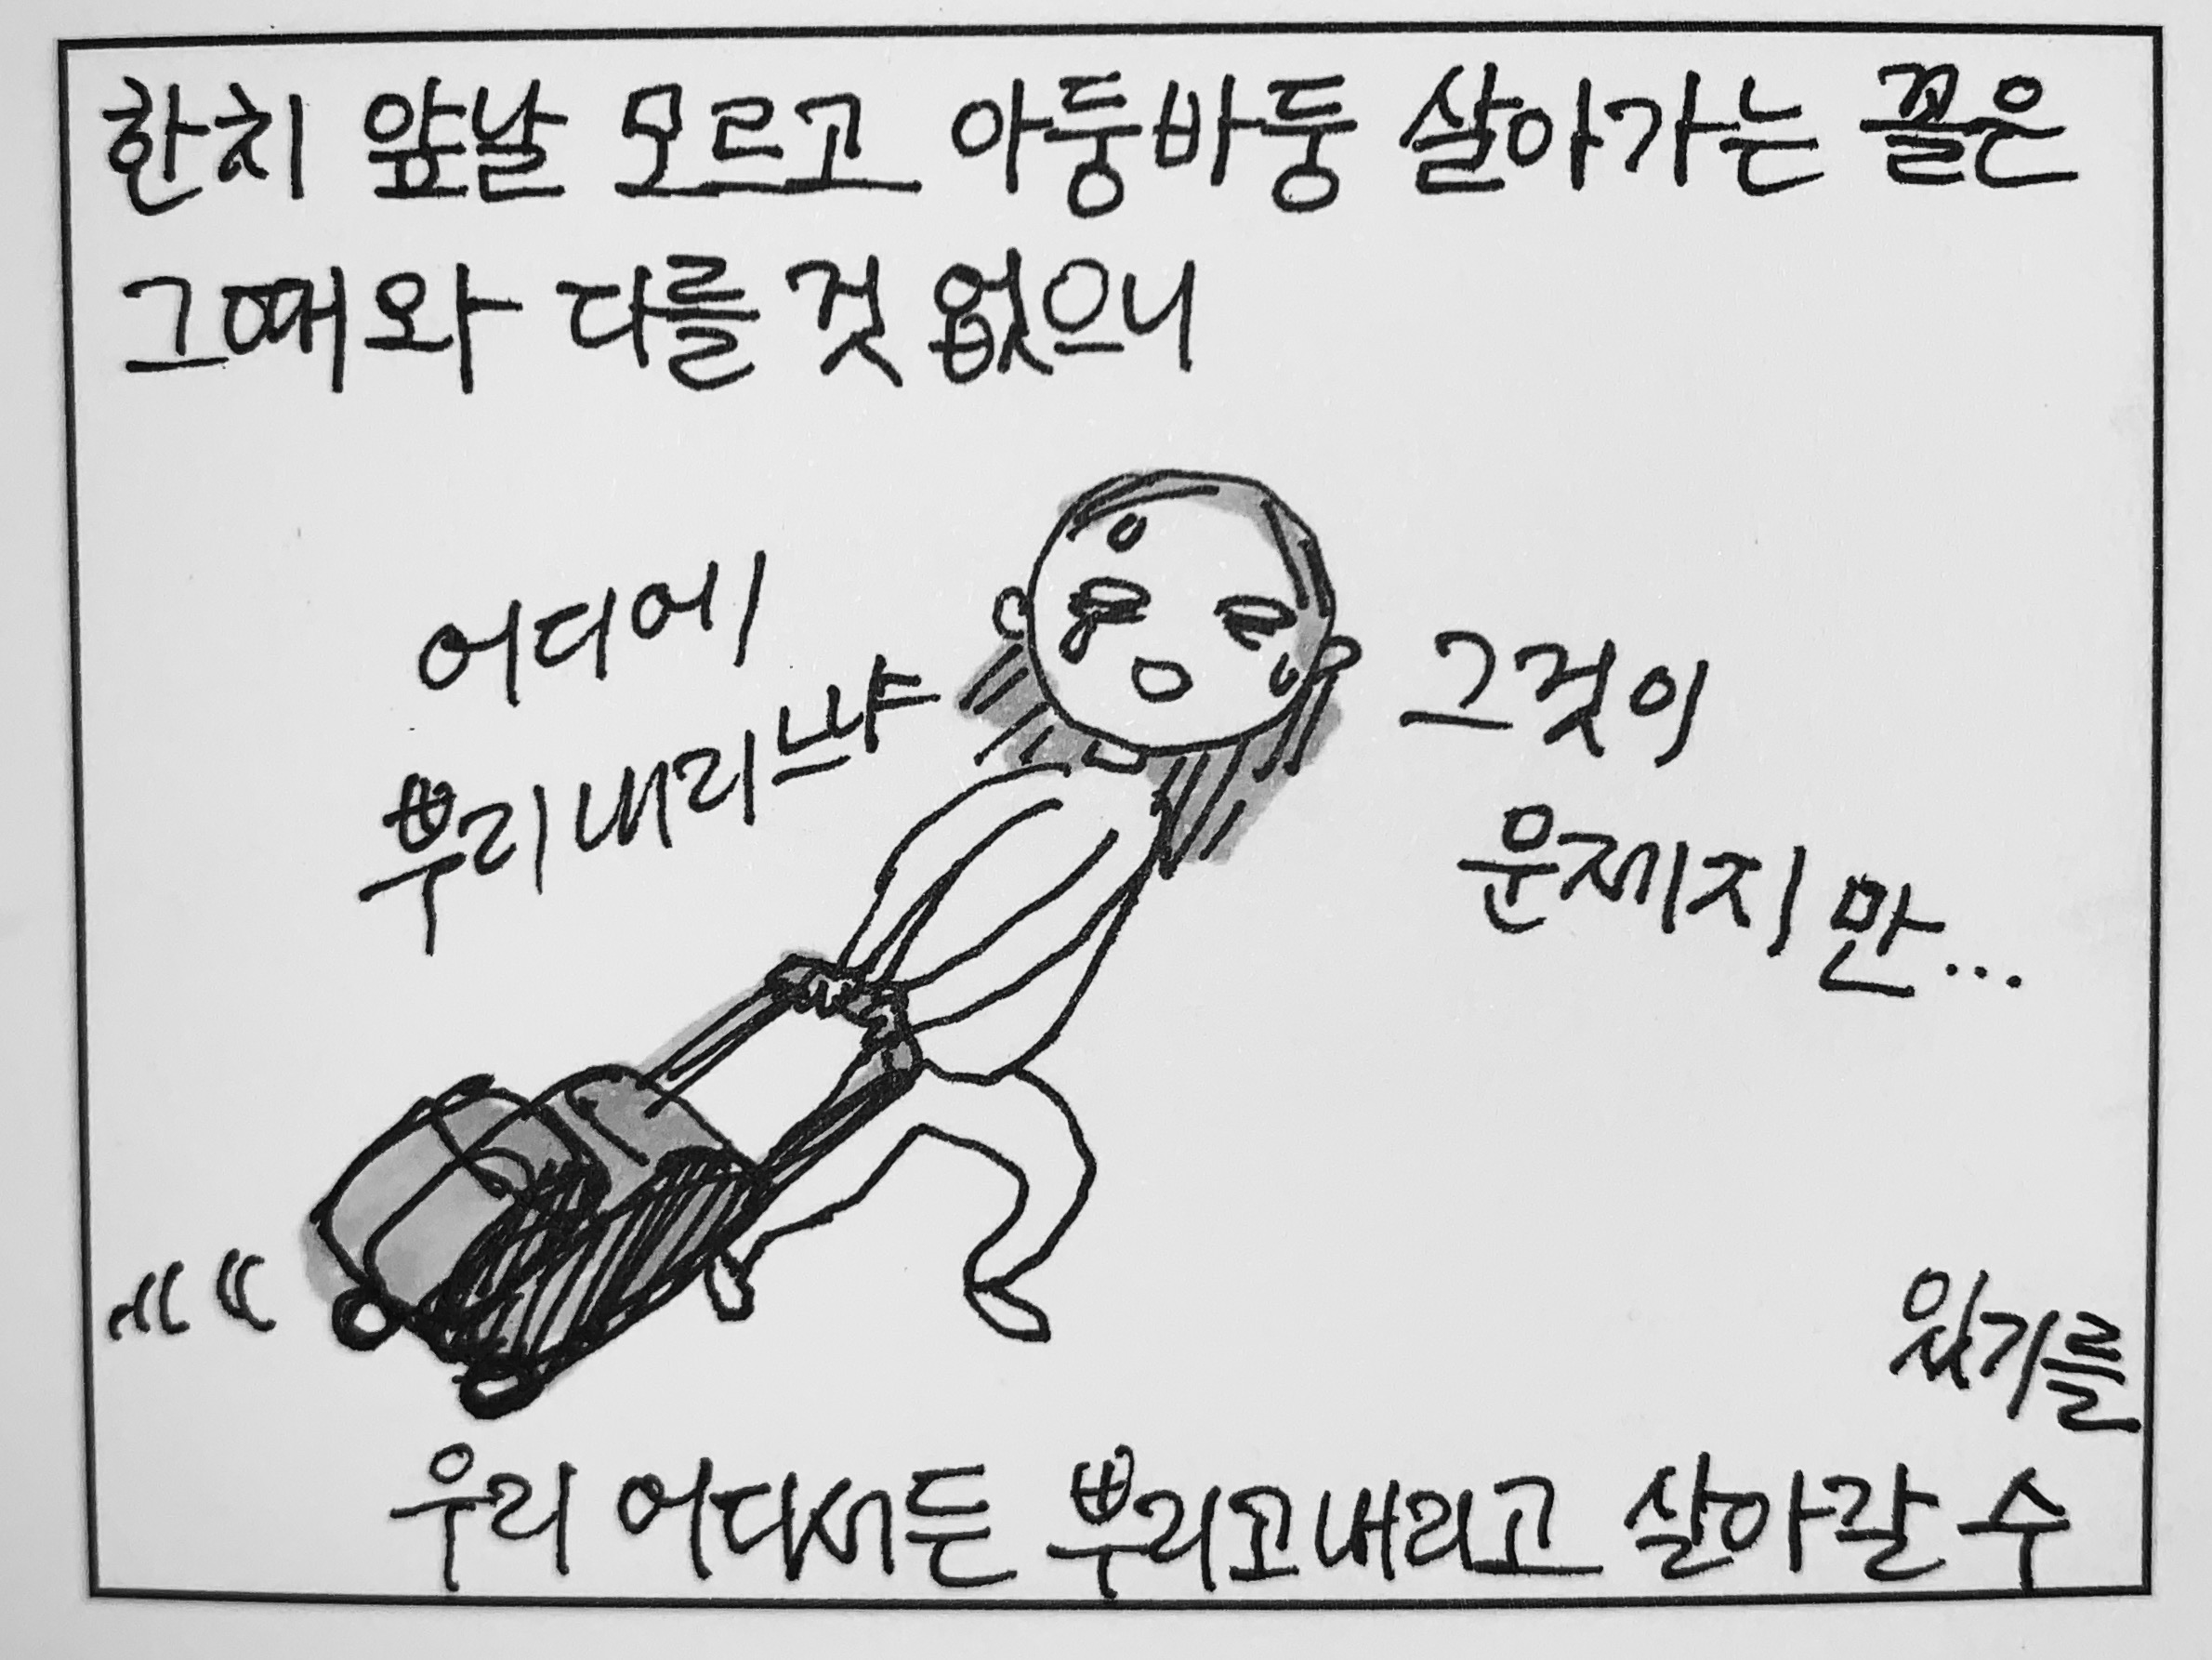 한치 앞날 모르고 아둥바둥 살아가는 꼴은
그때와 다를 것 없으니
어디에
뿌리내리느냐
그것이
문제지만...
우리 어디서든 뿌리고내리고 살아갈 수
있기를